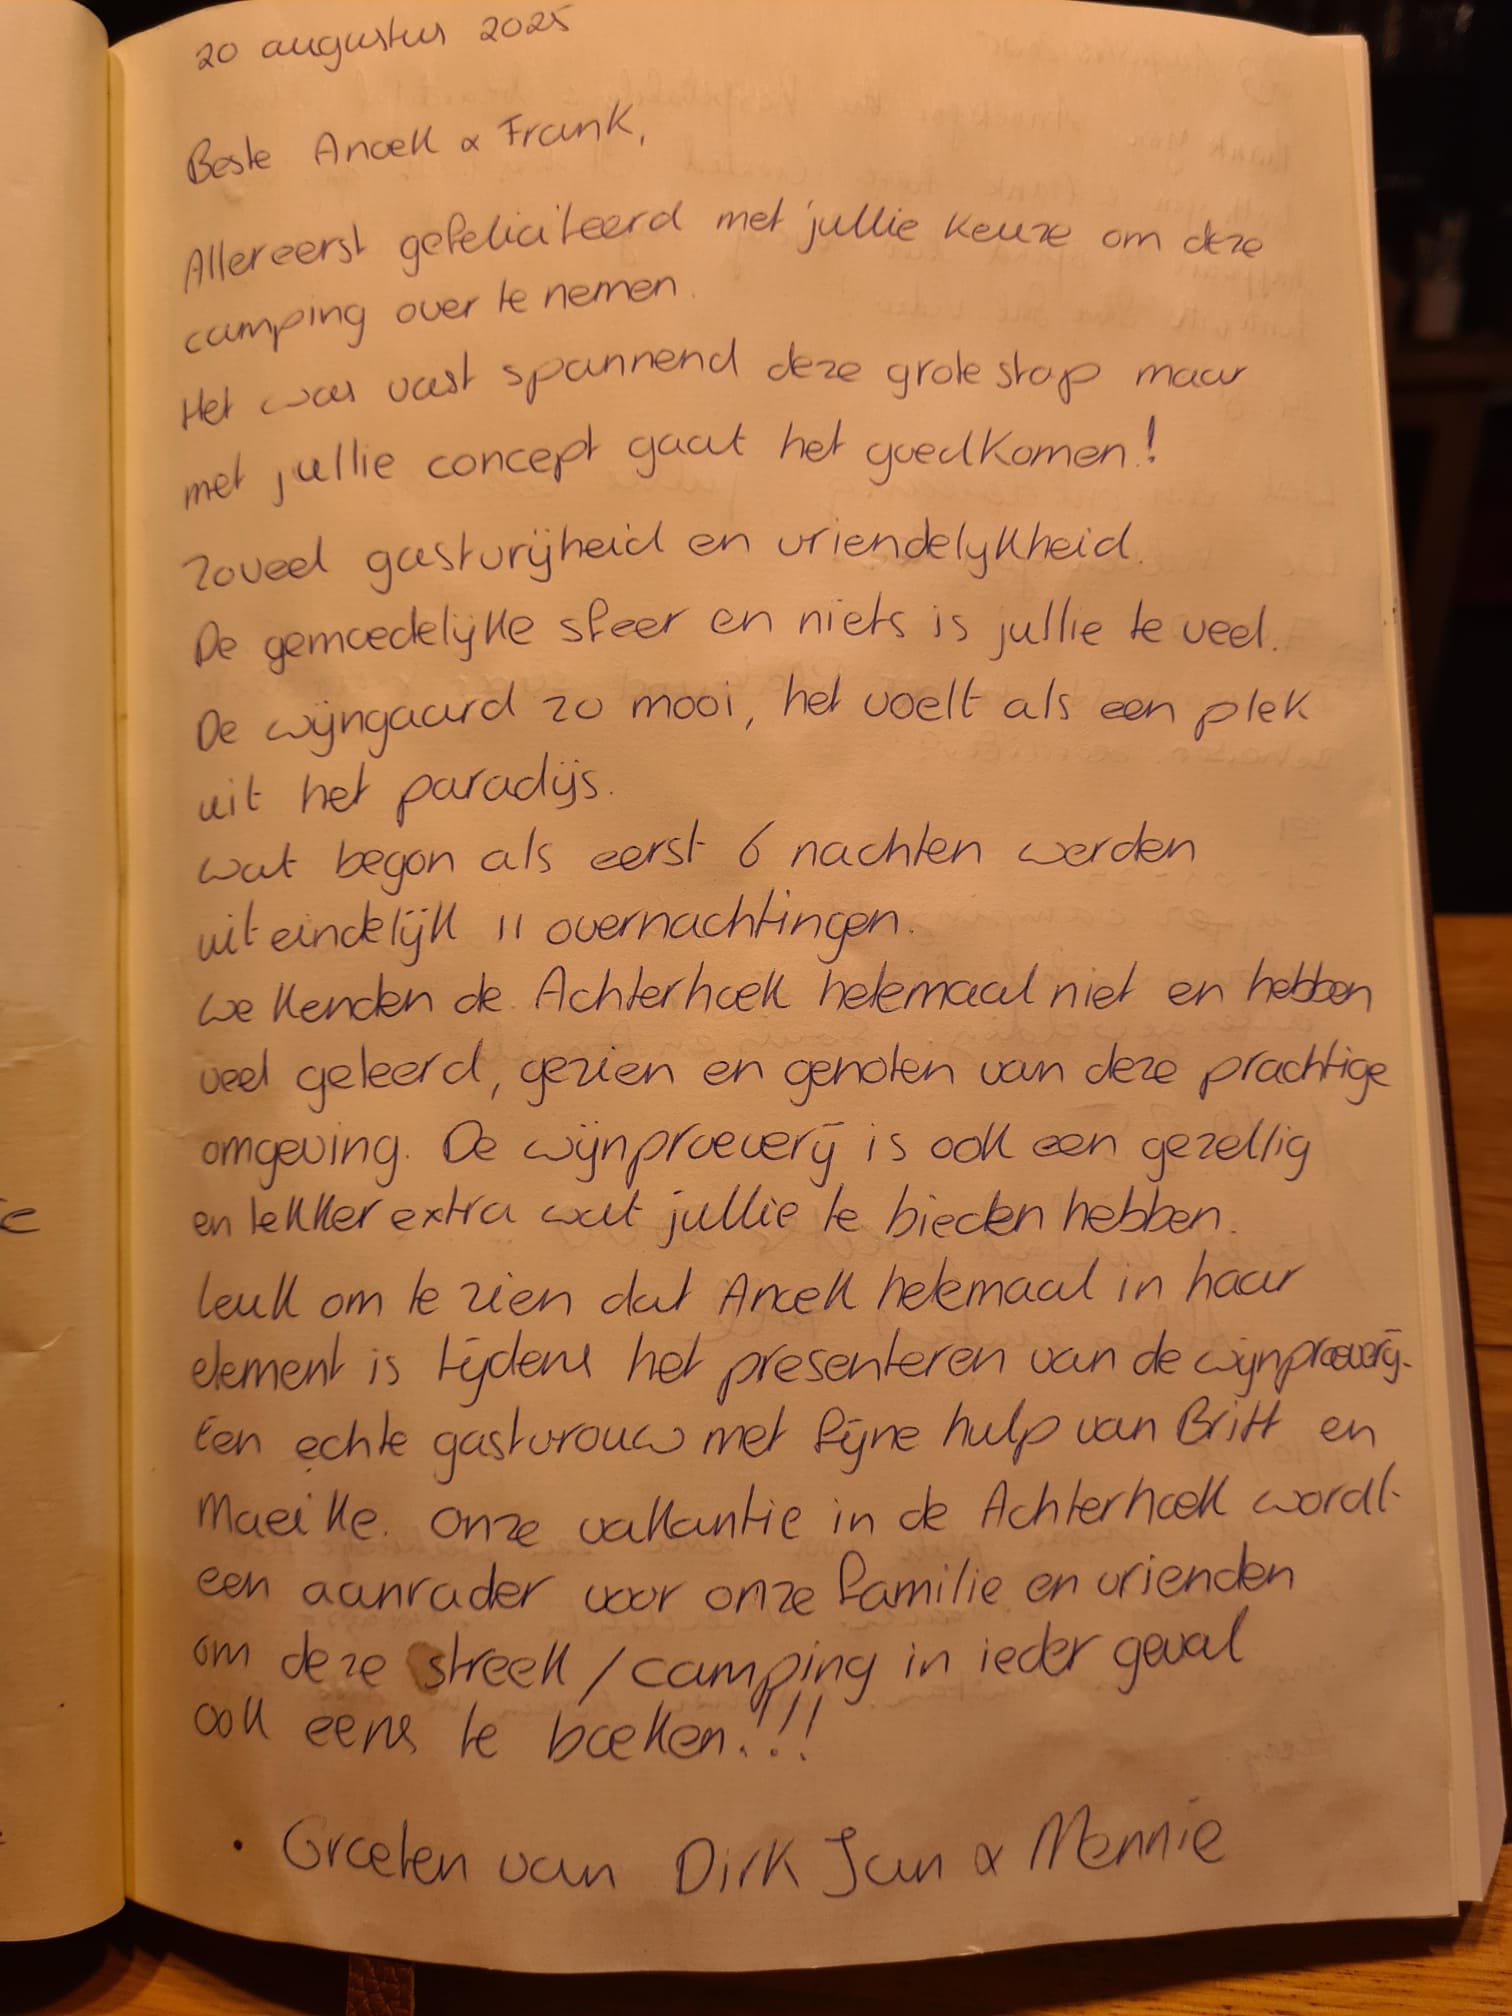 20 augustus 2025
Beste Anoek & Frank,
Allereerst gefeliciteerd met jullie keuze om deze
camping over te nemen.
Het was vast spannend deze grote stap maar
met jullie concept gaat het goedkomen!
Zoveel gastvrijheid en vriendelykheid.
De gemoedelijke sfeer en niets is jullie te veel.
De wijngaard zo mooi, het voelt als een plek
uit het paradijs.
wat begon als eerst 6 nachten werden
uiteindelijk 11 overnachtingen.
we kenden de Achterhoek helemaal niet en hebben
veel geleerd, gezien en genoten van deze prachtige
omgeving. De wijnproeverij is ook een gezellig
en lekker extra wat jullie te bieden hebben.
leuk om te zien dat Anoek helemaal in haar
element is tijdens het presenteren van de wijnproeverij.
Een echte gastvrouw met fijne hulp van Britt en
Maeike. Onze vakantie in de Achterhoek wordt
een aanrader voor onze familie en vrienden
om deze streek / camping in ieder geval
ook eens te boeken!!!
• Groeten van Dirk Jan & Mennie